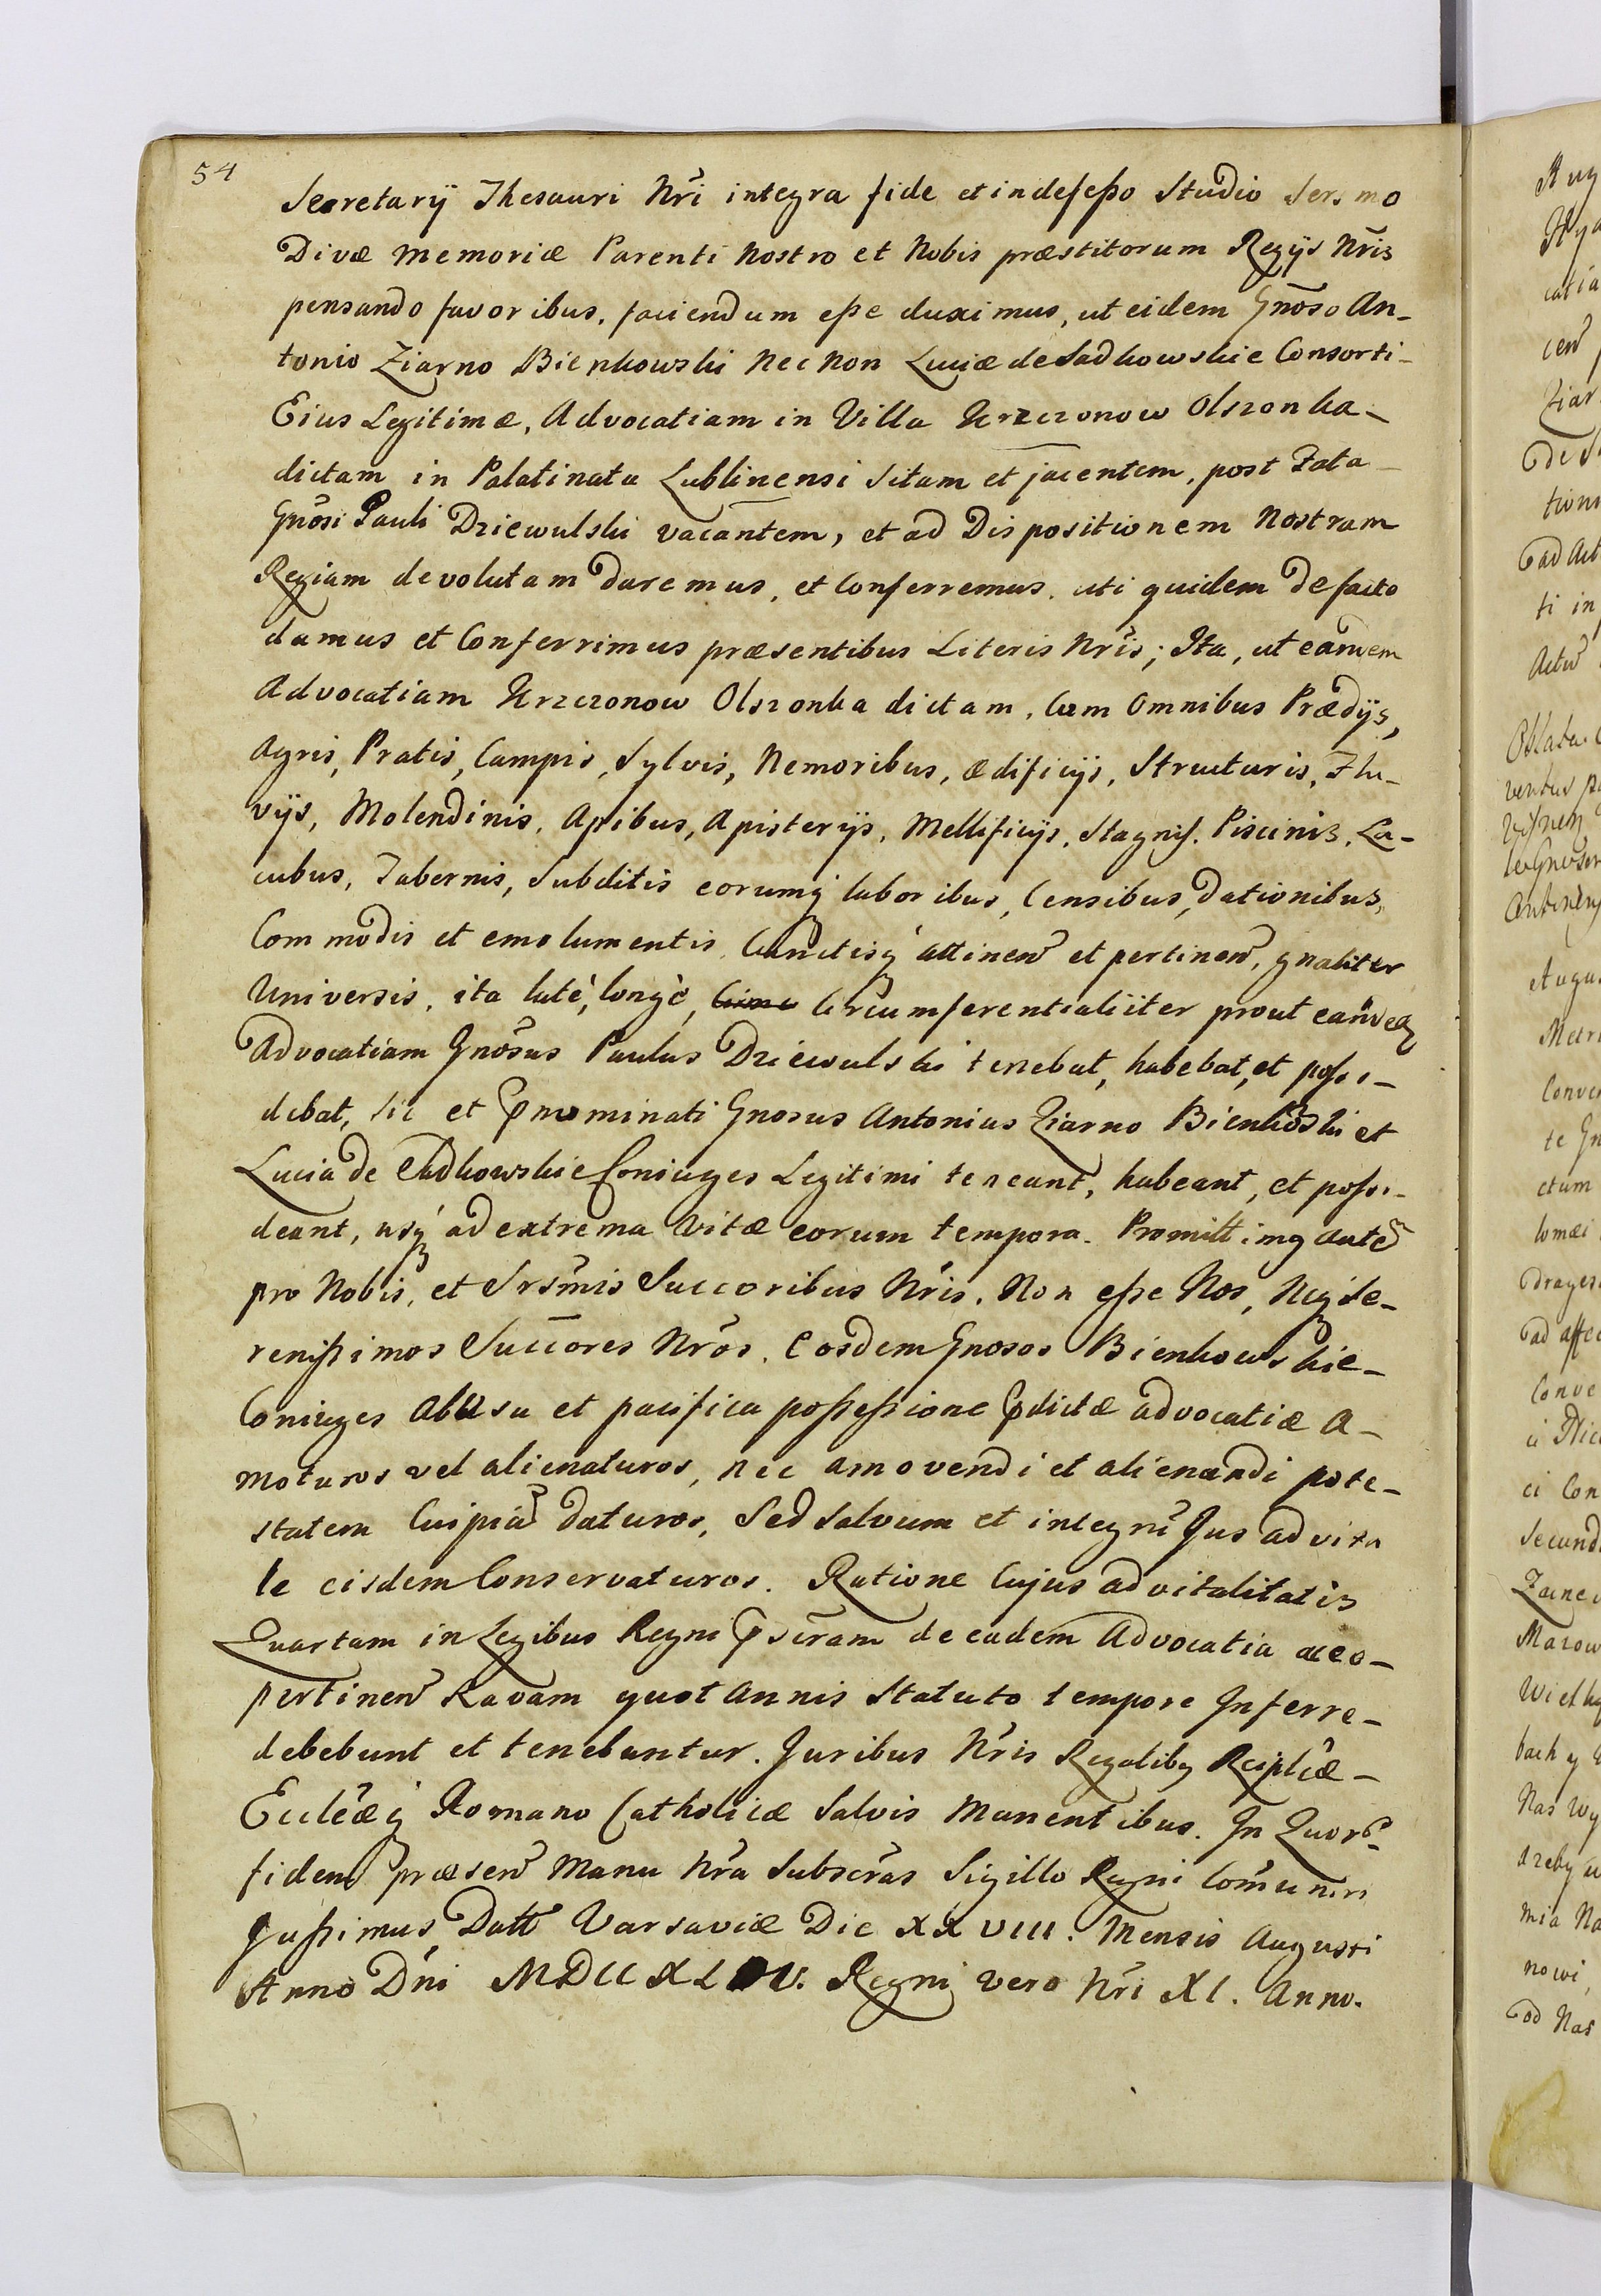 54
Secretarÿ Thesauri Nri integra fide et indefeßo Studio Sersmo
Divæ Memoriæ Parenti Nostro et Nobis præstitorum Regÿs Nris
pensando favoribus, faciendum eße duximus, ut eidem Gnoso An-
tonio Ziarno Bienkowski nec non Luciæ de Sadkowskie Consorti-
Eius Legitimæ, Advocatiam in Villa Urzczonow Olszonka-
dictam in Palatinatu Lublinensi Sitam et jacentem, post Fata-
Gnosi Pauli Dziewulski vacantem, et ad Dispositionem Nostram
Regiam devolutam daremus, et Conferremus, uti quidem de facto
damus et Conferrimus præsentibus Literis Nris; Ita, ut eandem
Advocatiam Urzczonow Olszonka dictam, Cum Omnibus Prædÿs,
Agris, Pratis, Campis, Sylvis, Nemoribus, ædificÿs, Structuris, Flu-
vÿs, Molendinis, Apibus, Apisterÿs, Mellificÿs, Stagnis, Piscinis, La-
cubus, Tabernis, Subditis eorumq laboribus, Censibus, Dationibus,
Commodis et emolumentis, Cunctisq attinen et pertinen, gnaliter
Universis, ita latè, longè, Circumferentialiiter prout eande
Advocatiam Gnosus Paulus Dziewulski tenebat, habebat, et poßi-
debat, sic et pnominati Gnosus Antonius Ziarno Bienkoski et
Lucia de Sadkowskie Coniuges Legitimi teneant, habeant, et poßi-
deant, usq ad extrema Vitæ eorum tempora. Promittimg aute
pro Nobis, et Srsmis Succoribus Nris, Non eße Nos, Neq Se-
renißimos Succores Nros, Eosdem Gnosos Bienkowskie-
Coniuges Ab Usu et pacifica poßeßione pdictæ advocatiæ A-
moturos vel alienaturos, nec amovendi et alienandi pote-
statem Cuipia daturos, Sed Salvum et integru Jus ad vita
le eisdem Conservaturos. Ratione Cujus advitalitatis
Quartam in Legibus Regni pscram de eadem Advocatia aceo-
pertinen Ravam quot Annis Statuto tempore Inferre-
debebunt et tenebuntur. Juribus Nris Regalibg Reiplicæ-
Eccleæq Romano Catholicæ Salvis Manentibus. In Quor
fidem præsen Manu Nra Subscras Sigillo Regni Comuniri
Jußimus Datt Varsaviæ Die XXVIII. Mensis Augusti
Anno Dni MDCCXLIV. Regni vero Nri XI. Anno.